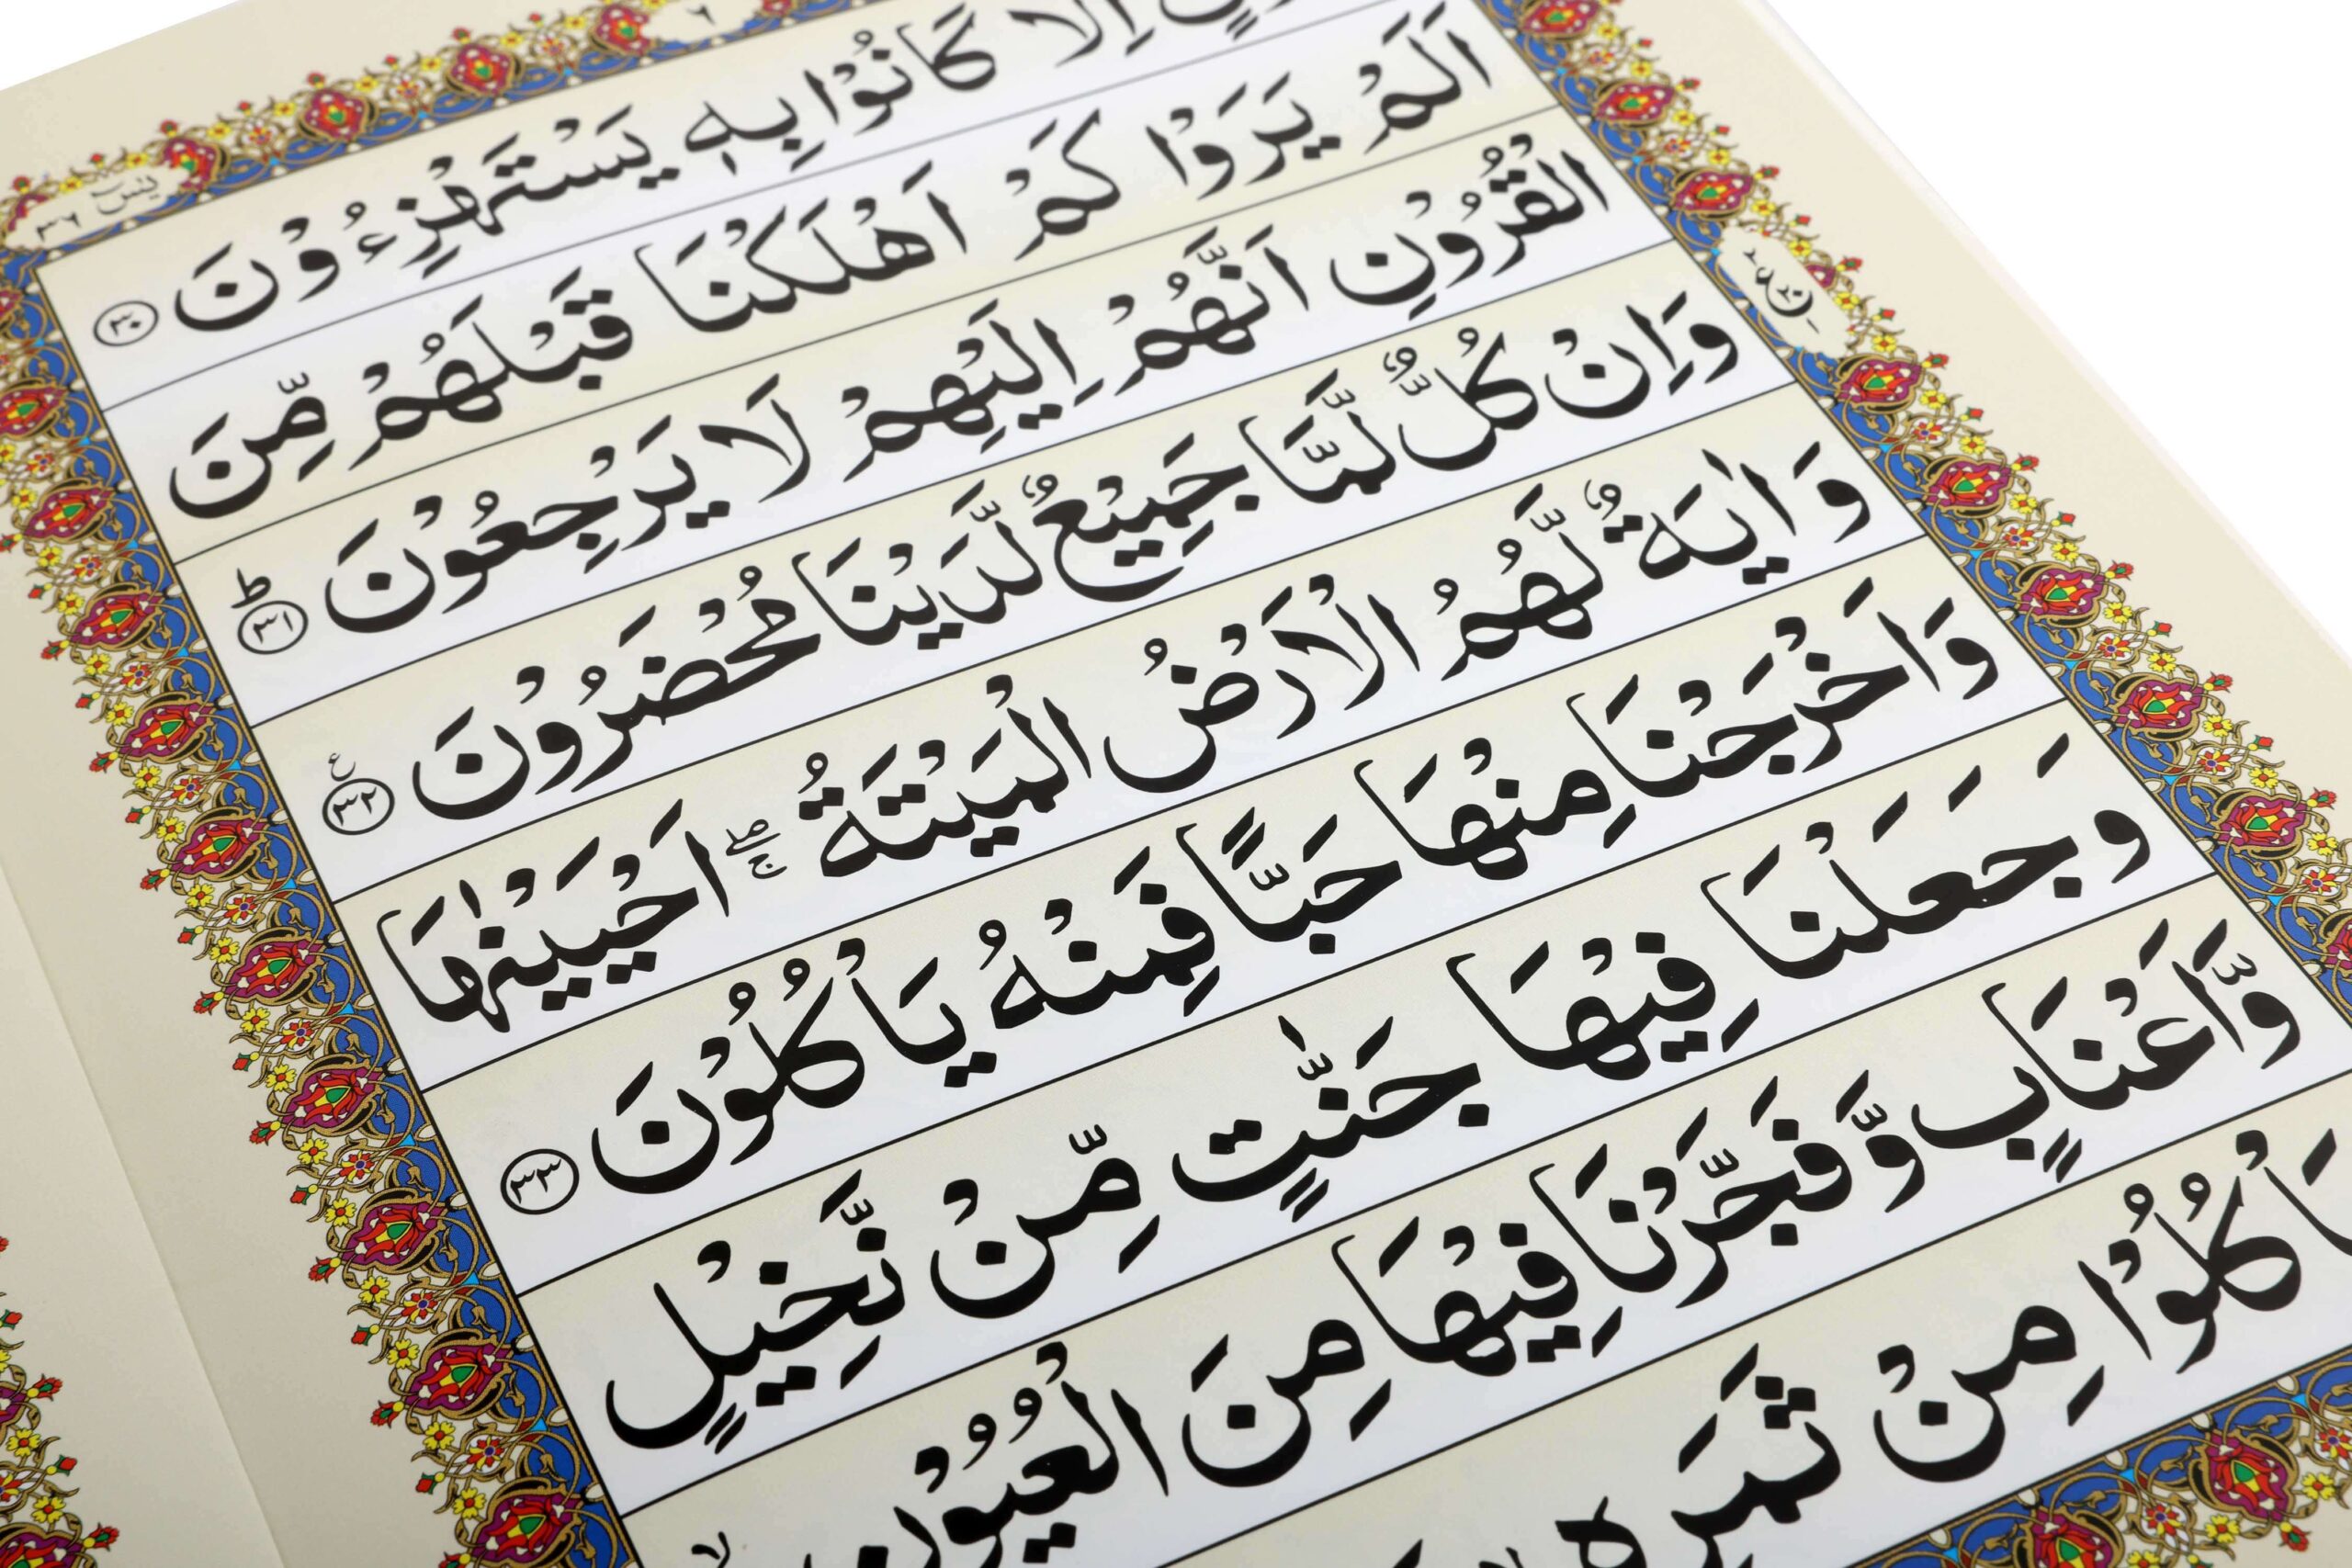 ٢
يٰسٓ ٣٦
اِلَّا كَانُوْا بِهٖ يَسْتَهْزِءُوْنَ ٣٠
اَلَمْ يَرَوْا كَمْ اَهْلَكْنَا قَبْلَهُمْ مِّنَ
الْقُرُوْنِ اَنَّهُمْ اِلَيْهِمْ لَا يَرْجِعُوْنَ ٣١ ؕ
وَاِنْ كُلٌّ لَّمَّا جَمِيْعٌ لَّدَيْنَا مُحْضَرُوْنَ ٣٢ ع
وَاٰيَةٌ لَّهُمُ الْاَرْضُ الْمَيْتَةُ ۚۖ اَحْيَيْنٰهَا
وَاَخْرَجْنَا مِنْهَا حَبًّا فَمِنْهُ يَاْكُلُوْنَ ٣٣
وَجَعَلْنَا فِيْهَا جَنّٰتٍ مِّنْ نَّخِيْلٍ
وَّاَعْنَابٍ وَّفَجَّرْنَا فِيْهَا مِنَ الْعُيُوْنِ
يَاْكُلُوْا مِنْ ثَمَرِهٖ